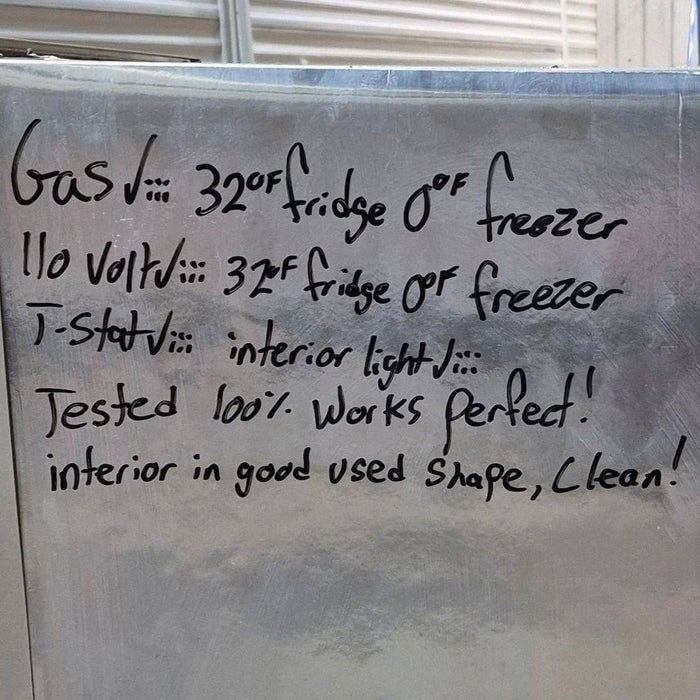 Gas √::: 32°F fridge 0°F freezer
110 Volt √::: 32°F fridge 0°F freezer
T-Stat √::: interior light √:::
Tested 100% Works perfect!
interior in good used shape, Clean!